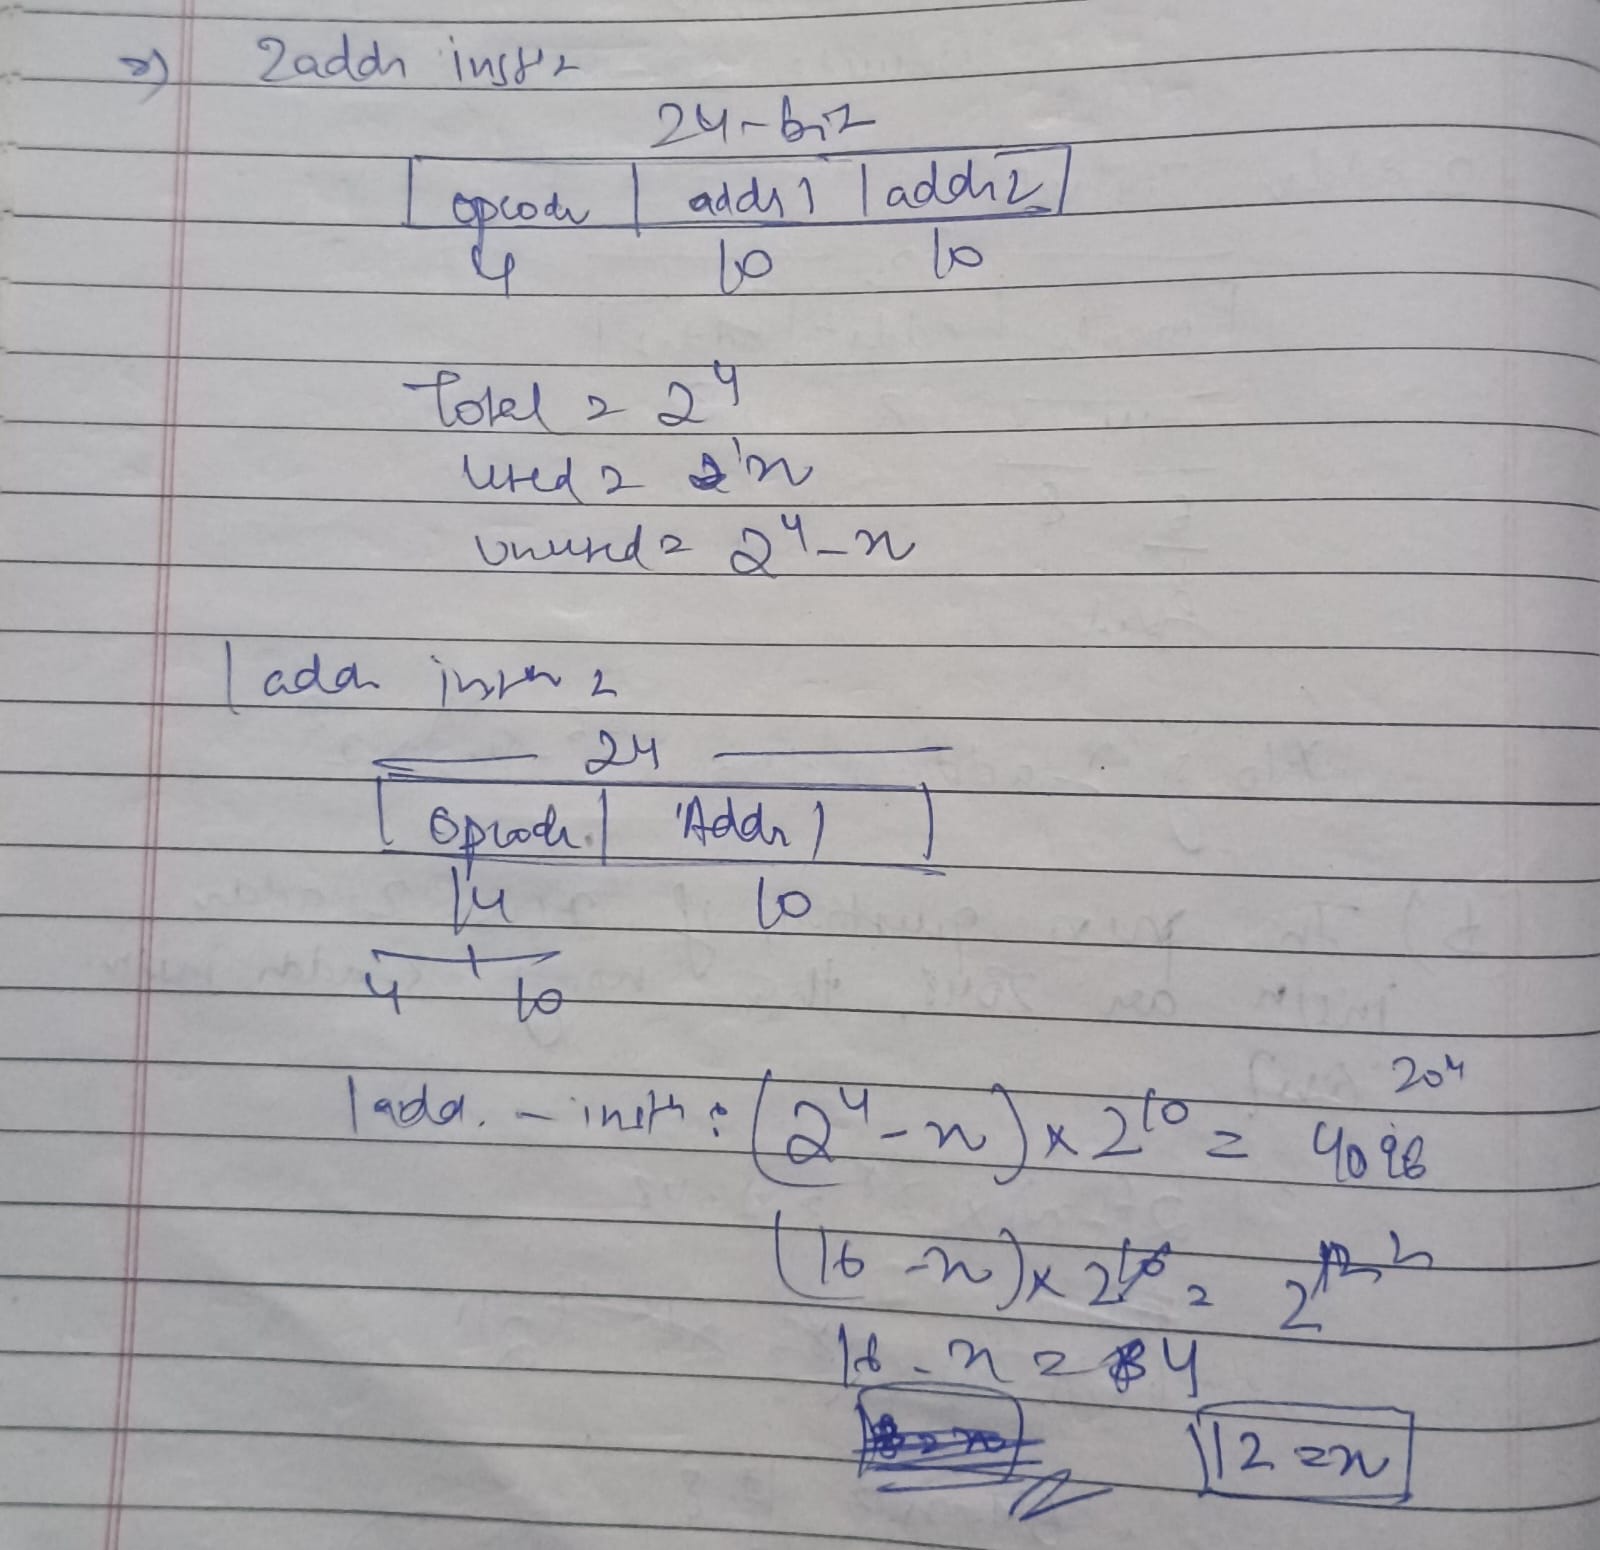 ⇒) 2 addr instr =
24-bit
opcode | addr 1 | addr 2
4 10 10
Total = 2^4
used = n
unused = 2^4 - n
1 addr instr =
24
Opcode | Addr 1
14 10
4 10
204
1 add. - instr : (2^4 - n) x 2^10 = 4096
(16 - n) x 2^10 = 2^12 2
16 - n = 4
12 = n